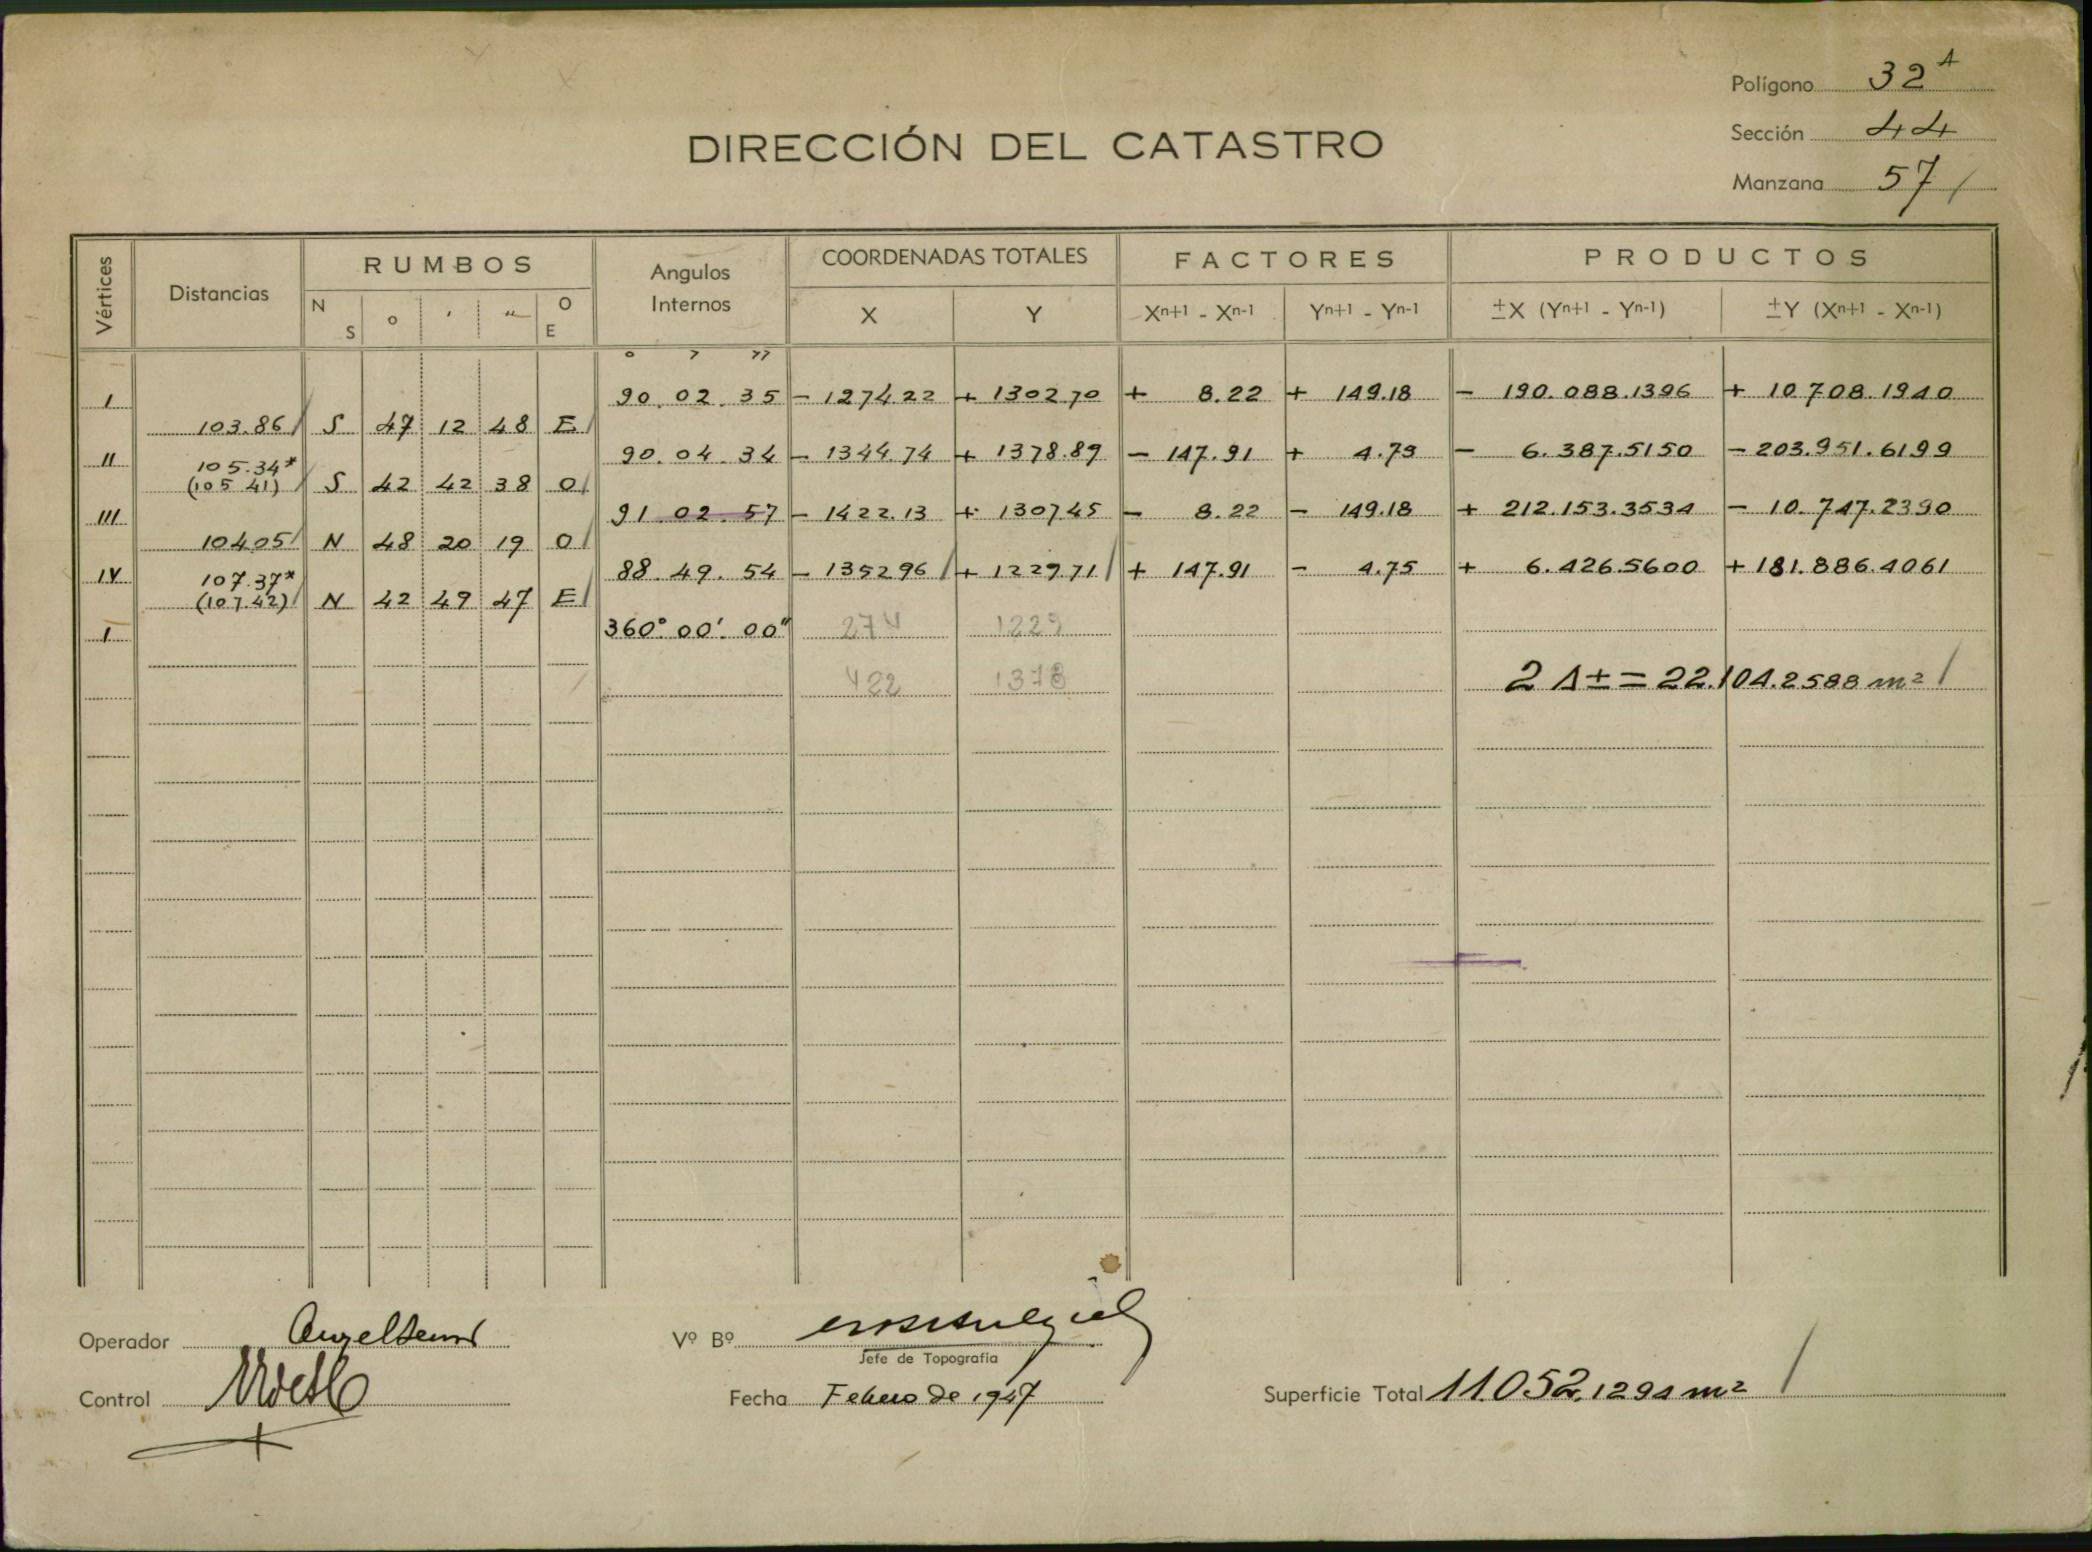 Polígono 32 A
Sección 44
Manzana 57
DIRECCIÓN DEL CATASTRO
Vértices Distancias RUMBOS Angulos Internos COORDENADAS TOTALES FACTORES PRODUCTOS
N S o ' " O E X Y Xn+1 - Xn-1 Yn+1 - Yn-1 ±X (Yn+1 - Yn-1) ±Y (Xn+1 - Xn-1)
o ' "
I 90. 02. 35 - 1274.22 + 1302.70 + 8.22 + 149.18 - 190.088.1396 + 10.708.1940
103.86 S 47 12 48 E
II 90. 04. 34 - 1344.74 + 1378.89 - 147.91 + 4.75 - 6.387.5150 - 203.951.6199
105.34*
(105.41) S 42 42 38 O
III 91. 02. 57 - 1422.13 + 1307.45 - 8.22 - 149.18 + 212.153.3534 - 10.747.2390
104.05 N 48 20 19 O
IV 88. 49. 54 - 1352.96 + 1229.71 + 147.91 - 4.75 + 6.426.5600 + 181.886.4061
107.37*
(107.42) N 42 49 47 E
I 360° 00'. 00" 274 1229
422 1378
2 Δ ± = 22.104.2588 m²
Operador
Vº Bº
Jefe de Topografía
Control
Fecha Febrero de 1947
Superficie Total 11.052,1294 m²